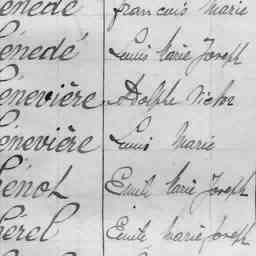 énedé françois Marie
énedé Louis Marie Joseph
énevière Adolphe Victor
énevière Louis Marie
énot Emile Marie Joseph
érel Emile Marie Joseph